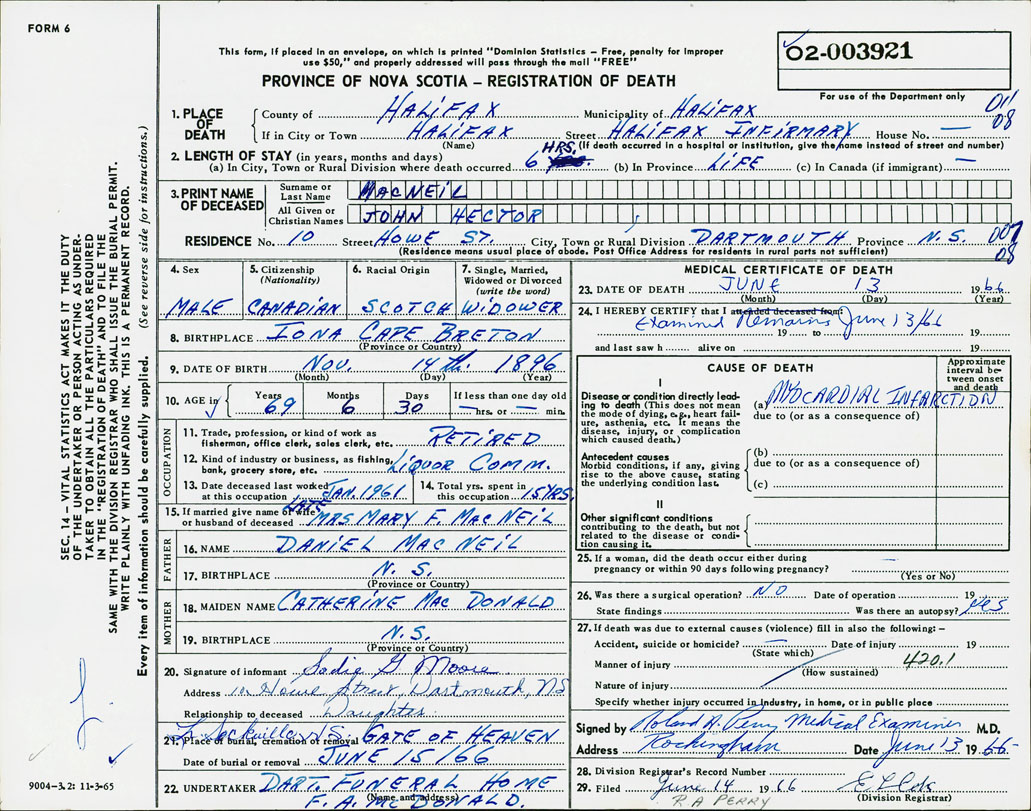 FORM 6
This form, if placed in an envelope, on which is printed "Dominion Statistics – Free, penalty for improper
use $50," and properly addressed will pass through the mail "FREE"
PROVINCE OF NOVA SCOTIA – REGISTRATION OF DEATH
02-003921
For use of the Department only
011
08
1. PLACE OF DEATH
County of HALIFAX Municipality of HALIFAX
If in City or Town HALIFAX Street HALIFAX INFIRMARY House No. —
(Name) (If death occurred in a hospital or institution, give the name instead of street and number)
2. LENGTH OF STAY (in years, months and days)
(a) In City, Town or Rural Division where death occurred 6 HRS. (b) In Province LIFE (c) In Canada (if immigrant) —
3. PRINT NAME OF DECEASED
Surname or Last Name MACNEIL
All Given or Christian Names JOHN HECTOR
RESIDENCE No. 10 Street HOWE ST. City, Town or Rural Division DARTMOUTH Province N.S.
08
(Residence means usual place of abode. Post Office Address for residents in rural parts not sufficient)
4. Sex
MALE
5. Citizenship (Nationality)
CANADIAN
6. Racial Origin
SCOTCH
7. Single, Married, Widowed or Divorced (write the word)
WIDOWER
8. BIRTHPLACE IONA CAPE BRETON
(Province or Country)
9. DATE OF BIRTH NOV. 14th. 1896
(Month) (Day) (Year)
10. AGE in Years 69 Months 6 Days 30 If less than one day old — hrs. or — min.
OCCUPATION
11. Trade, profession, or kind of work as fisherman, office clerk, sales clerk, etc. RETIRED
12. Kind of industry or business, as fishing, bank, grocery store, etc. LIQUOR COMM.
13. Date deceased last worked at this occupation JAN. 1961
14. Total yrs. spent in this occupation 15 YRS.
15. If married give name of wife or husband of deceased LATE MRS MARY F. MACNEIL
FATHER
16. NAME DANIEL MACNEIL
17. BIRTHPLACE N.S.
(Province or Country)
MOTHER
18. MAIDEN NAME CATHERINE MAC DONALD
19. BIRTHPLACE N.S.
(Province or Country)
20. Signature of informant Sadie G Moore
Address 10 Howe Street, Dartmouth, NS
Relationship to deceased Daughter
Sackville N.S.
21. Place of burial, cremation or removal GATE OF HEAVEN
Date of burial or removal JUNE 15/66
22. UNDERTAKER DART. FUNERAL HOME
(Name and address)
F. A. McDONALD.
MEDICAL CERTIFICATE OF DEATH
23. DATE OF DEATH JUNE 13 1966
(Month) (Day) (Year)
24. I HEREBY CERTIFY that I attended deceased from:
Examined Remains June 13/66
19 to 19
and last saw h alive on 19
CAUSE OF DEATH
Approximate interval between onset and death
I
Disease or condition directly leading to death (This does not mean the mode of dying, e.g., heart failure, asthenia, etc. It means the disease, injury, or complication which caused death.)
(a) MYOCARDIAL INFARCTION
due to (or as a consequence of)
Antecedent causes
Morbid conditions, if any, giving rise to the above cause, stating the underlying condition last.
(b)
due to (or as a consequence of)
(c)
II
Other significant conditions
contributing to the death, but not related to the disease or condition causing it.
25. If a woman, did the death occur either during
pregnancy or within 90 days following pregnancy? —
(Yes or No)
26. Was there a surgical operation? NO Date of operation 19
State findings Was there an autopsy? Yes
27. If death was due to external causes (violence) fill in also the following: –
Accident, suicide or homicide? — Date of injury 19
(State which)
Manner of injury 420.1
(How sustained)
Nature of injury
Specify whether injury occurred in industry, in home, or in public place
Signed by Roland A. Perry Medical Examiner M.D.
Address Rockingham Date June 13 1966
28. Division Registrar's Record Number
29. Filed June 14 1966
(Division Registrar)
R A PERRY
SEC. 14 – VITAL STATISTICS ACT MAKES IT THE DUTY
OF THE UNDERTAKER OR PERSON ACTING AS UNDER-
TAKER TO OBTAIN ALL THE PARTICULARS REQUIRED
IN THE "REGISTRATION OF DEATH" AND TO FILE THE
SAME WITH THE DIVISION REGISTRAR WHO SHALL ISSUE THE BURIAL PERMIT.
WRITE PLAINLY WITH UNFADING INK. THIS IS A PERMANENT RECORD.
Every item of information should be carefully supplied. (See reverse side for instructions.)
9004-3.2: 11-3-65